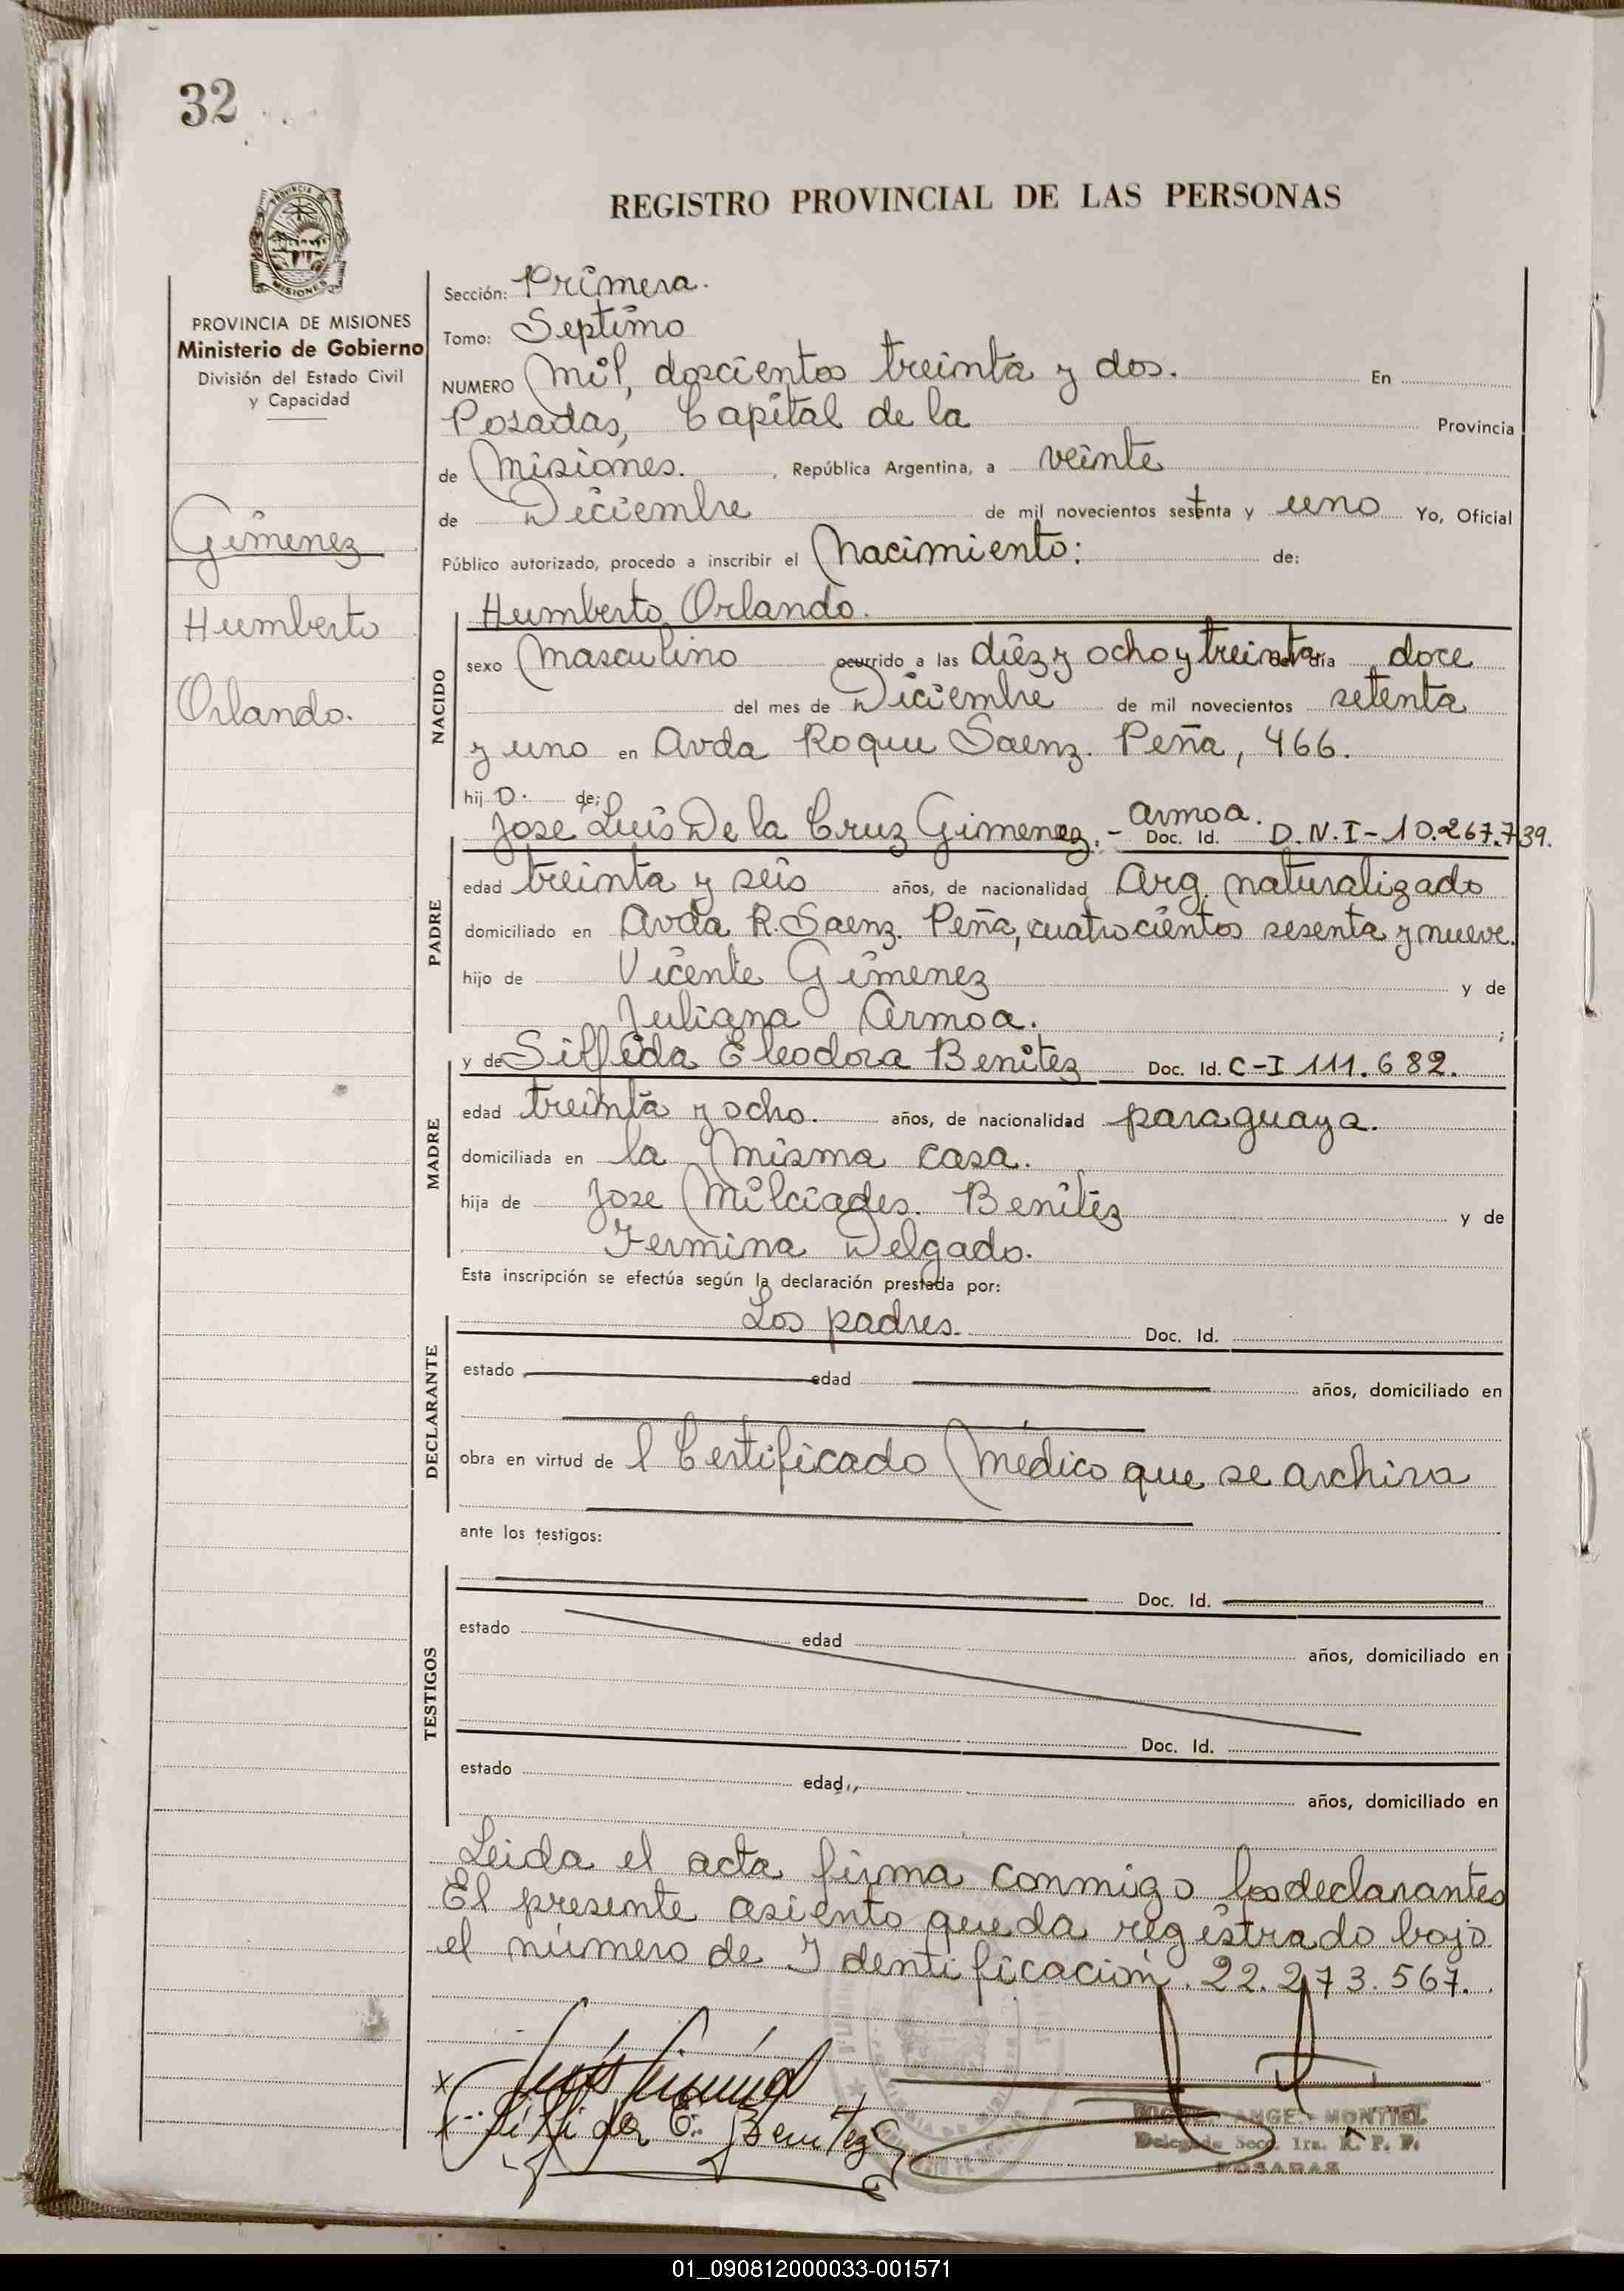 32
REGISTRO PROVINCIAL DE LAS PERSONAS
PROVINCIA
MISIONES
PROVINCIA DE MISIONES
Ministerio de Gobierno
División del Estado Civil
y Capacidad
Gimenez
Humberto
Orlando.
Sección: Primera.
Tomo: Septimo
NUMERO Mil, doscientos treinta y dos. En
Posadas, Capital de la Provincia
de Misiones. , República Argentina, a veinte
de Diciembre de mil novecientos setenta y uno Yo, Oficial
Público autorizado, procedo a inscribir el Nacimiento: de:
NACIDO
Humberto Orlando.
sexo Masculino ocurrido a las diéz y ocho y treinta del día doce
del mes de Diciembre de mil novecientos setenta
y uno en Avda Roque Saenz. Peña, 466.
hij o. de;
PADRE
Jose Luis De la Cruz Gimenez. - Armoa. Doc. Id. D.N.I-10.267.739.
edad treinta y seis años, de nacionalidad Arg. naturalizado
domiciliado en Avda R. Saenz. Peña, cuatrocientos sesenta y nueve.
hijo de Vicente Gimenez y de
Juliana Armoa. ;
MADRE
y de Silfida Eleodora Benitez Doc. Id. C-I 111.682.
edad treinta y ocho. años, de nacionalidad paraguaya.
domiciliada en la misma casa.
hija de Jose Milciades. Benitez y de
Fermina Delgado.
Esta inscripción se efectúa según la declaración prestada por:
DECLARANTE
Los padres. Doc. Id.
estado edad años, domiciliado en
obra en virtud de l Certificado Médico que se archiva
ante los testigos:
TESTIGOS
Doc. Id.
estado edad años, domiciliado en
Doc. Id.
estado edad años, domiciliado en
Leida el acta firma conmigo los declarantes
El presente asiento queda registrado bajo
el número de Identificación. 22.273.567.
x
x Silfida E. Benitez
MIGUEL ANGEL MONTIEL
Delegado Secc. 1ra. R. P. P.
POSADAS
01_090812000033-001571